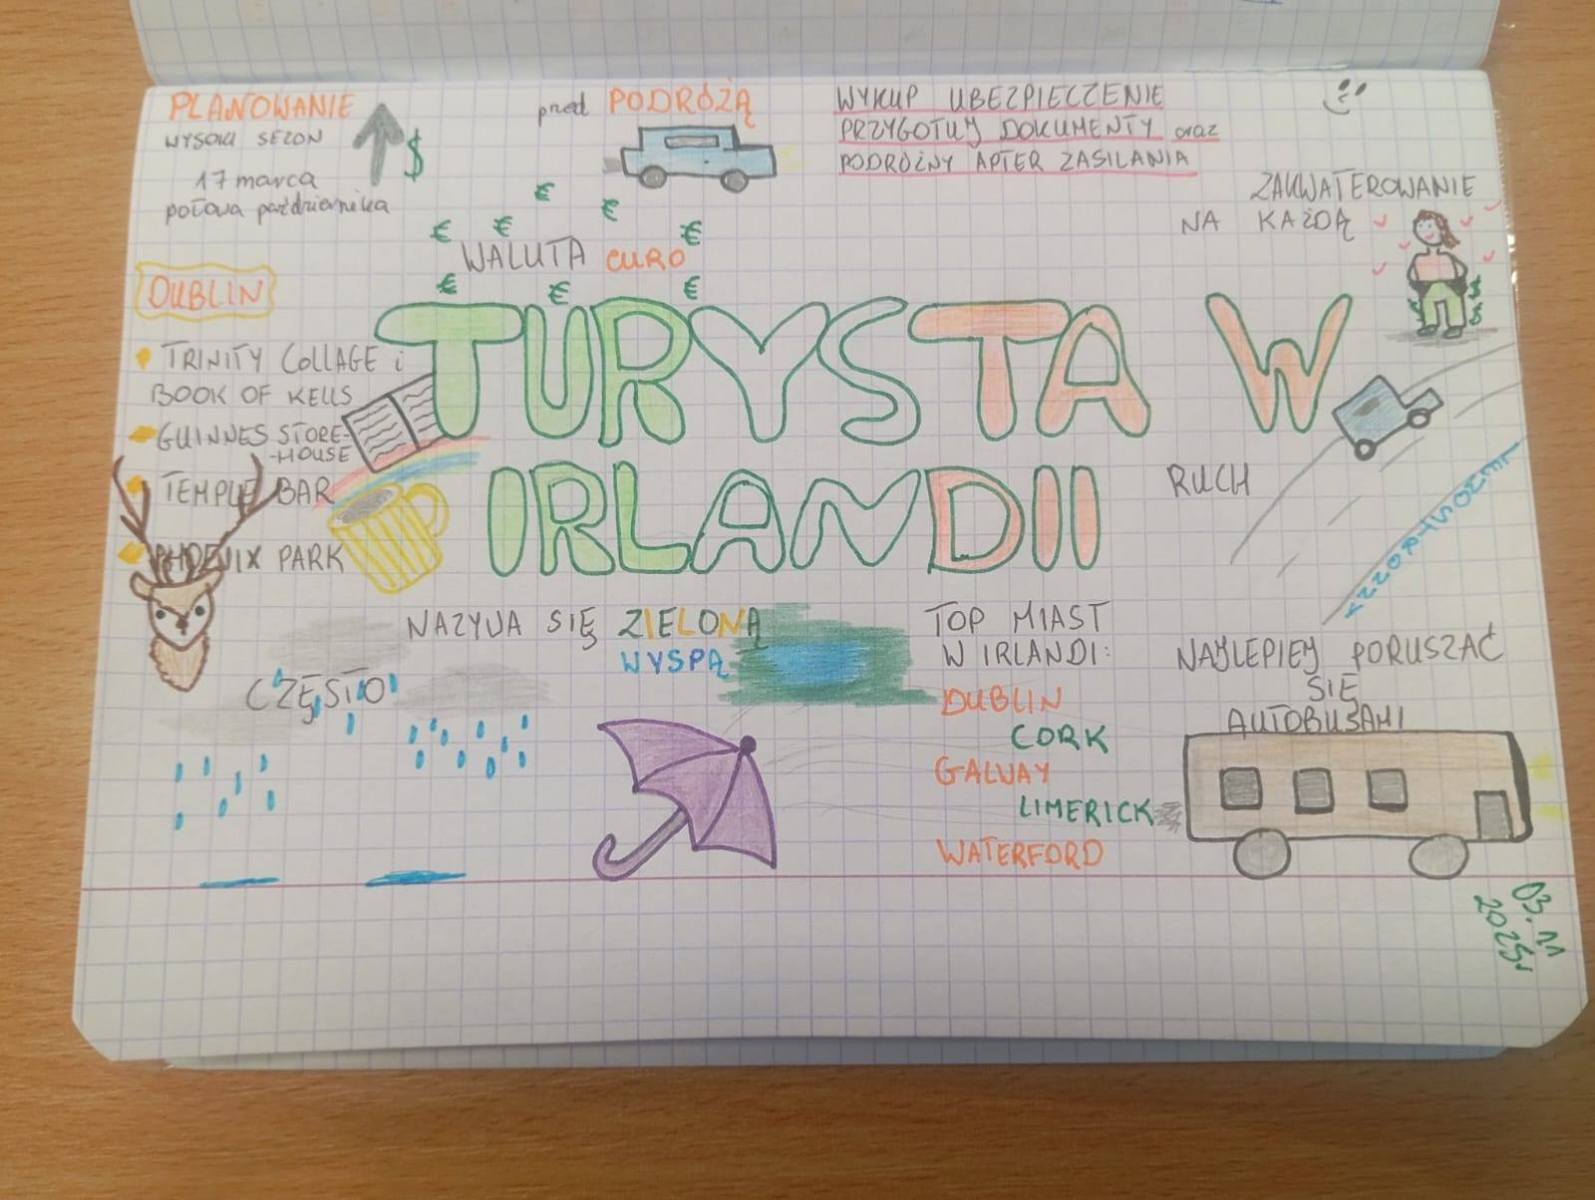 PLANOWANIE
WYSOKI SEZON
17 marca
połowa października
$
przed PODRÓŻĄ
WYKUP UBEZPIECZENIE
PRZYGOTUJ DOKUMENTY oraz
PODRÓŻNY APTER ZASILANIA
ZAKWATEROWANIE
NA KAŻDĄ
€ € € € €
WALUTA EURO
€ € €
DUBLIN
TRINITY COLLAGE i
BOOK OF KELLS
GUINNES STORE-
-HOUSE
TEMPLE BAR
PHOENIX PARK
TURYSTA W
IRLANDII
RUCH
LEWOSTRONNY
NAZYWA SIĘ ZIELONĄ
WYSPĄ
CZĘSTO
TOP MIAST
W IRLANDI:
DUBLIN
CORK
GALWAY
LIMERICK
WATERFORD
NAJLEPIEJ PORUSZAĆ
SIĘ
AUTOBUSAMI
03.11
2025r